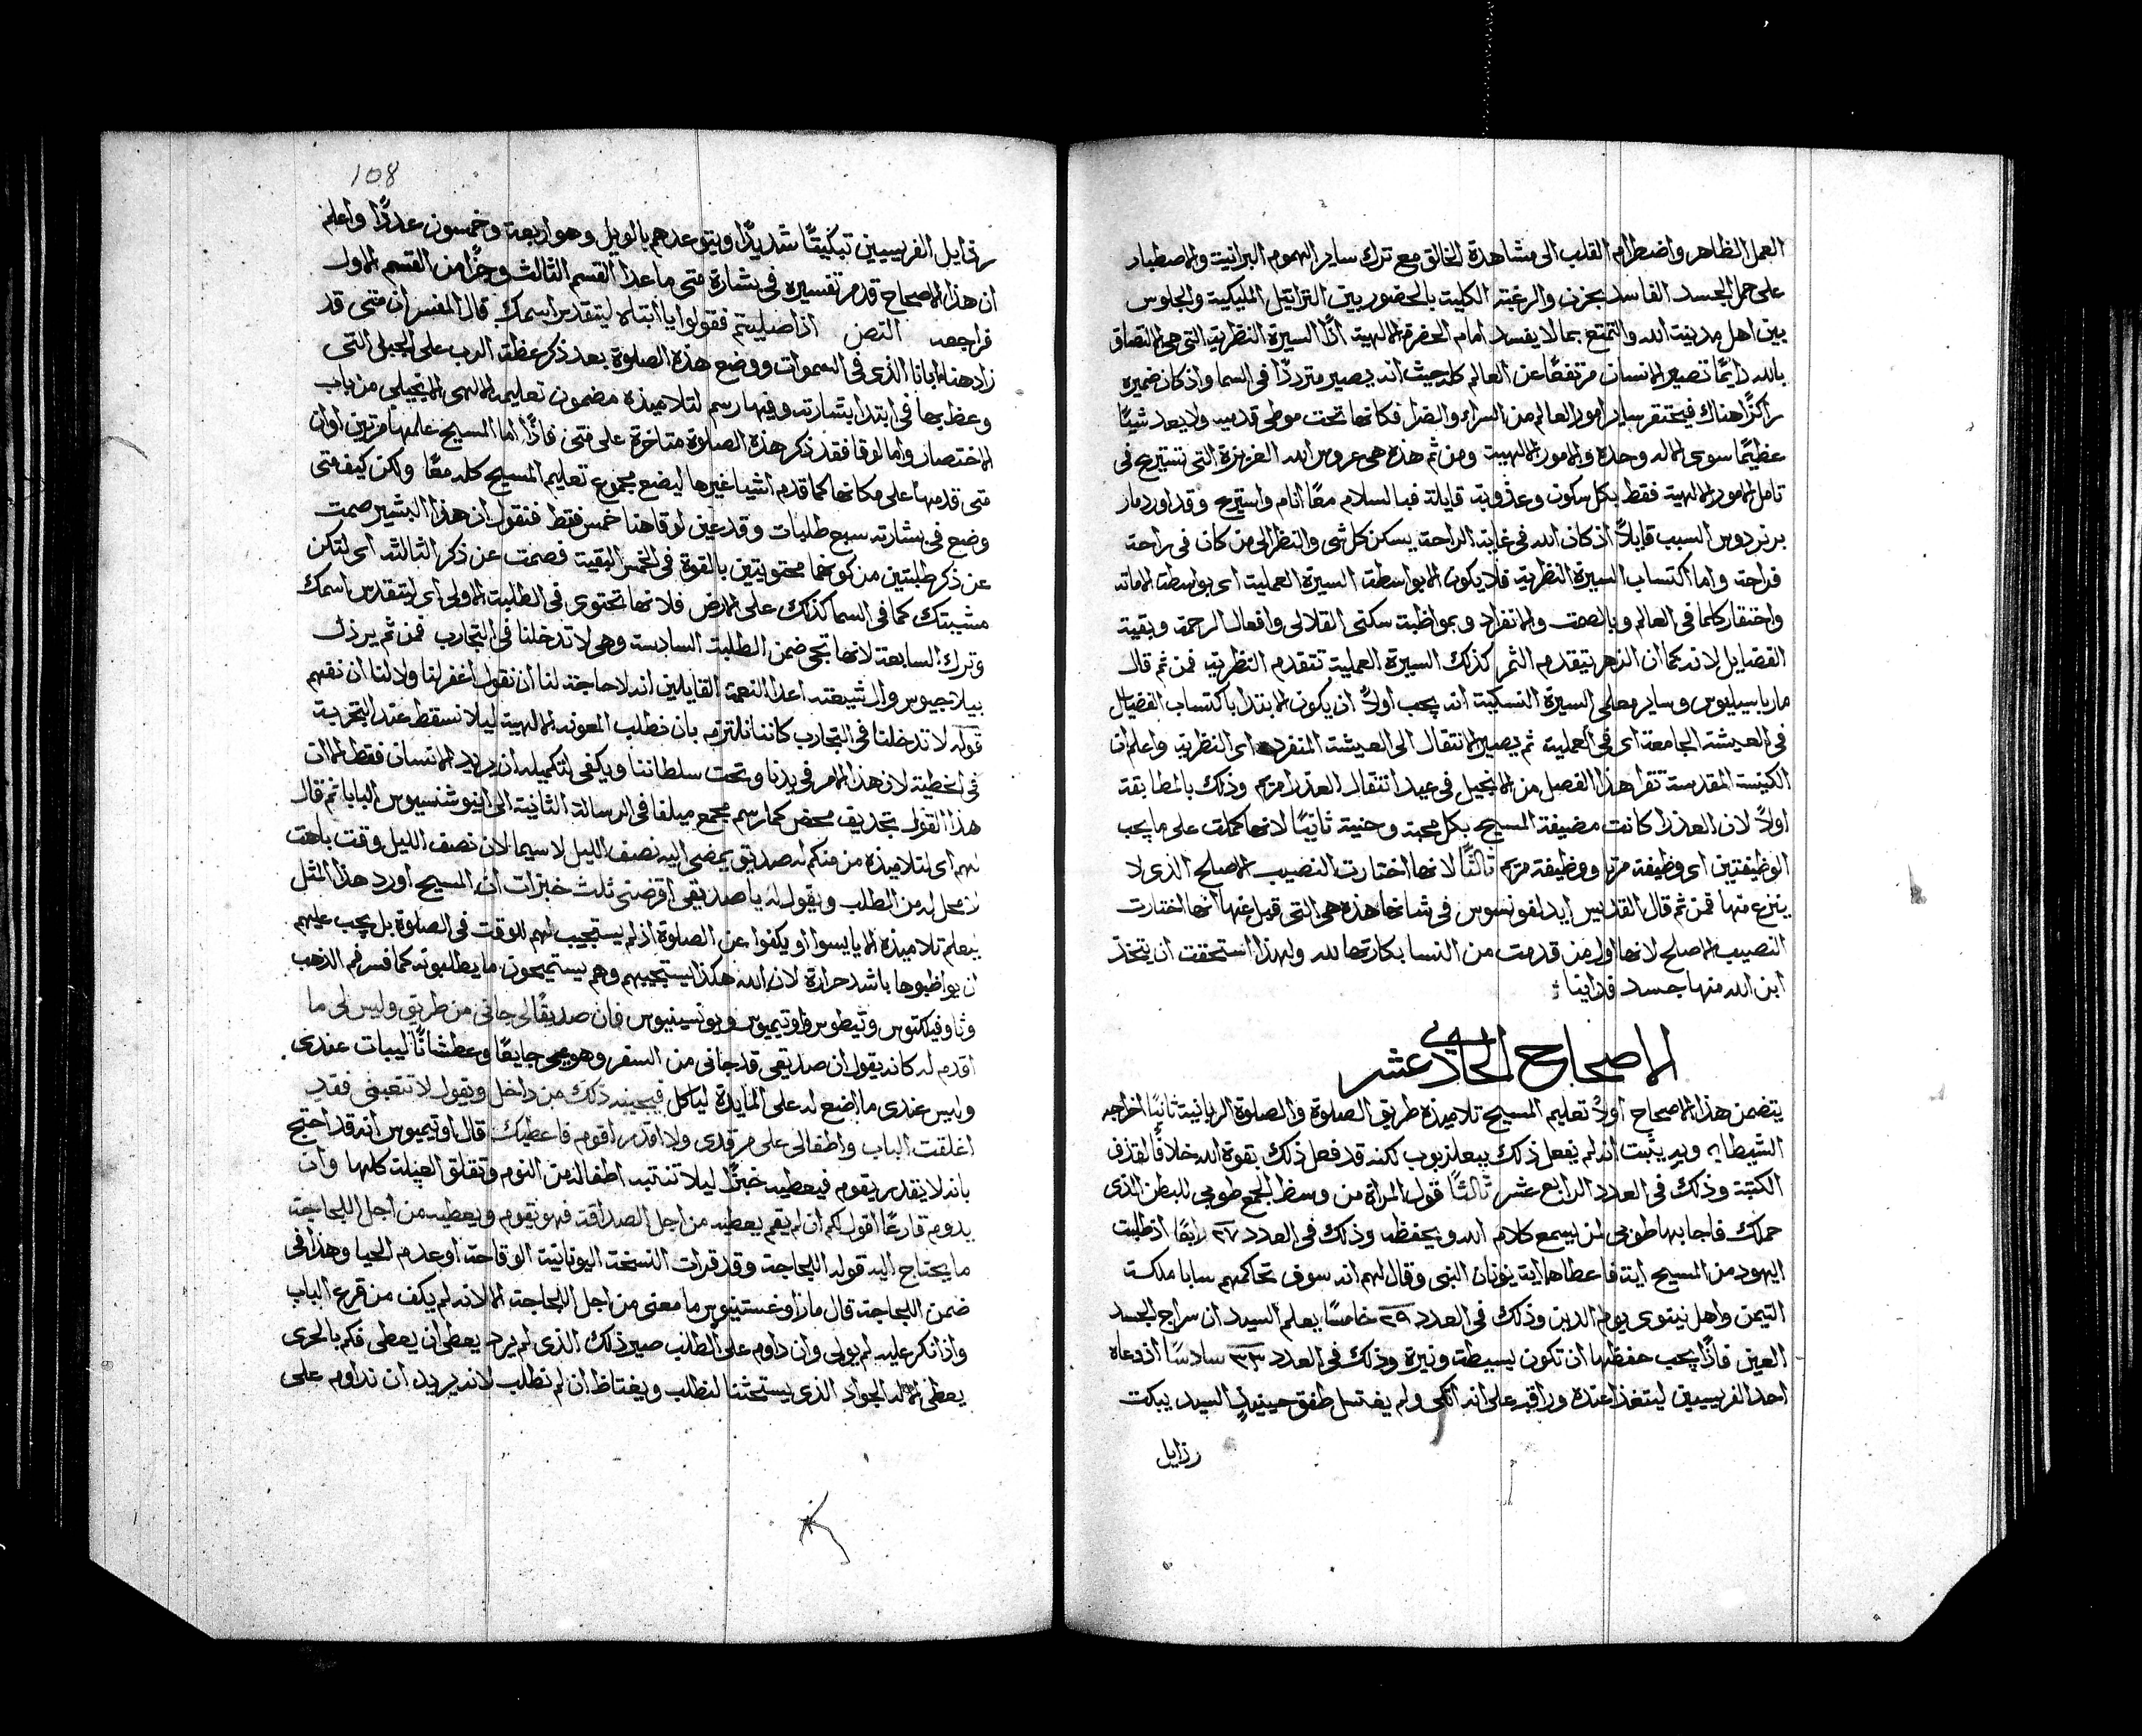 العمل الظاهر واضطرام القلب الى مشاهدة الخالق مع ترك ساير الهموم البرانية والاصطبار
على حمل الجسد الفاسد بحزن والرغبة الكلية بالحضور بين التراتيل المليكية والجلوس
بين اهل مدينة الله والتمتع بما لا يفسد امام الحضرة الالهية اذًا السيرة النظرية التي هي الالتصاق
بالله دايمًا تصير الانسان مرتفعًا عن العالم كله حيث انه يصير مترددًا في السما واذ كان ضميره
راكزًا هناك فيحتقر ساير امور العالم من السراء والضرا فكانها تحت موطي قدميه ولا يعد شيًا
عظيمًا سوى الاله وحده والامور الالهية ومن ثم هذه هي عروس الله العزيزة التي تستريح في
تامل الامور الالهية فقط بكل سكون وعذوبة قايلة فبالسلام معًا انام واستريح وقد اورد مار
برنردوس السبب قايلاً اذ كان الله في غاية الراحة يسكن كل شي والنظر الى من كان في راحة
فراحة واما اكتساب السيرة النظرية فلا يكون الا بواسطة السيرة العملية اى بواسطة الاماتة
واحتقار كلما في العالم وبالصمت والانفراد وبمواظبة سكنى القلالي وافعال الرحمة وبقية
الفضايل لانه كما ان الزهر يتقدم الثمر كذلك السيرة العملية تتقدم النظرية فمن ثم قال
مار باسيليوس وساير معلمى السيرة النسكية انه يجب اولاً ان يكون الابتدا باكتساب الفضايل
في العيشة الجامعة اى في العملية ثم يصير الانتقال الى العيشة المنفردة اى النظرية واعلم ان
الكنيسة المقدسة تقرا هذا الفصل من الانجيل في عيد انتقال العذرا مريم وذلك بالمطابقة
اولاً لان العذرا كانت مضيفة المسيح بكل محبة وحنية ثانيًا لانها كملت على ما يجب
الوظيفتين اى وظيفة مرتا ووظيفة مريم ثالثًا لانها اختارت النصيب الاصلح الذى لا
ينزع منها فمن ثم قال القديس ايدلفونسوس في شانها هذه هي التي قيل عنها انها اختارت
النصيب الاصلح لانها اول من قدمت من النسا بكارتها لله ولهذا استحقت ان يتخذ
ابن الله منها جسد فداينا
الاصحاح الحادي عشر
يتضمن هذا الاصحاح اولاً تعليم المسيح تلاميذه طريق الصلوة والصلوة الربانية ثانيًا اخراجه
الشيطان وبه يثبت انه لم يفعل ذلك ببعلزبوب لكنه قد فعل ذلك بقوة الله خلافًا لقذف
الكتبة وذلك في العدد الرابع عشر ثالثًا قول المراة من وسط الجمع طوبى للبطن الذى
حملك فاجابها طوبى لمن يسمع كلام الله ويحفظه وذلك في العدد ٢٧ رابعًا اذ طلبت
اليهود من المسيح اية فاعطاها اية يونان النبى وقال لهم انه سوف تحاكمهم سابا ملكة
التيمن واهل نينوى يوم الدين وذلك في العدد ٢٩ خامسًا يعلم السيد ان سراج الجسد
العين فاذًا يجب حفظها ان تكون بسيطة ونيرة وذلك في العدد ٣٣ سادسًا اذ دعاه
احد الفريسيين ليتغذا عنده وراقبه على انه اتكى ولم يغتسل طفق حينيذٍ السيد يبكت
رزايل
108
رزايل الفريسيين تبكيتًا شديدًا ويتوعدهم بالويل وهو اربعة وخمسون عددًا واعلم
ان هذا الاصحاح قدم تفسيره في بشارة متى ما عدا القسم الثالث وجزًا من القسم الاول
فراجعه النص اذا صليتم فقولوا يا ابتاه ليتقدس اسمك قال المفسر ان متى قد
زاد هنا ابانا الذى في السموات ووضع هذه الصلوة بعد ذكر عظة الرب على الجبل التى
وعظ بها في ابتدا بشارته وفيها رسم لتلاميذه مضمون تعليمه الالهى الانجيلى من باب
الاختصار واما لوقا فقد ذكر هذه الصلوة متاخرة على متى فاذًا اما المسيح علمها مرتين او ان
متى قدمها على مكانها كما قدم اشيا غيرها ليضع مجموع تعليم المسيح كله معًا ولكن كيف متى
وضع في بشارته سبع طلبات وقد عين لوقا هنا خمس فقط فنقول ان هذا البشير صمت
عن ذكر طلبتين من كونهما محتويتين بالقوة في الخمس البقية فصمت عن ذكر الثالثة اى لتكن
مشيتك كما في السما كذلك على الارض فلانها تحتوى في الطلبة الاولى اى ليتقدس اسمك
وترك السابعة لانها تجى ضمن الطلبة السادسة وهى لا تدخلنا في التجارب فمن ثم يرذل
بيلاجيوس وال شيعته اعدا النعمة القايلين انه لا حاجة لنا ان نقول اغفر لنا ولا لنا ان نفهم
قوله لا تدخلنا في التجارب كاننا نلتزم بان نطلب المعونة الالهية ليلا نسقط عند التجربة
في الخطية لان هذا الامر في يدنا وتحت سلطاننا ويكفى لتكميله ان يريد الانسان فقط الا ان
هذا القول تجديف محض كما رسم مجمع ميلفا في الرسالة الثانية الى اينوشنسيوس البابا ثم قال
لهم اى لتلاميذه من منكم له صديق يمضى اليه نصف الليل لا سيما لان نصف الليل وقت باهت
لا محل له من الطلب ويقول له يا صديقى اقرضنى ثلث خبزات ان المسيح اورد هذا المثل
ليعلم تلاميذه الا يايسوا او يكفوا عن الصلوة اذ لم يستجيب لهم للوقت في الصلوة بل يجب عليهم
ان يواظبوها باشد حرارة لان الله هكذا يستجيبهم وهم يستميحون ما يطلبونه كما فسر فم الذهب
وثاوفيلكتوس وتيطوس واوتيميوس وبونسينيوس فان صديقًا لى جانى من طريق وليس لى ما
اقدم له كانه يقول ان صديقى قد جانى من السفر وهو جايعًا وعطشانًا ليبات عندى
وليس عندى ما اضع له على المايدة لياكل فيجيبه ذلك من داخل ويقول لا تتعبنى فقد
اغلقت الباب واطفالى على مرقدى ولا اقدر اقوم فاعطيك قال اوتيميوس انه قد احتج
بانه لا يقدر يقوم فيعطيه خبزًا ليلا تنتبه اطفاله من النوم وتقلق العيلة كلها وان
يدوم قارعًا اقول لكم ان لم يقم يعطيه من اجل الصداقة فهو يقوم ويعطيه من اجل اللجاجة
ما يحتاج اليه قوله اللجاجة وقد قرات النسخة اليونانية الوقاحة او عدم الحيا وهذا في
ضمن اللجاجة قال مار اوغستينوس ما معنى من اجل اللجاجة الا لانه لم يكف من قرع الباب
واذ انكر عليه لم يولى وان داوم على الطلب صير ذلك الذى لم يرد يعطى ان يعطى فكم بالحرى
يعطى الاله الجواد الذى يستحثنا لنطلب ويغتاظ ان لم نطلب لانه يريد ان نداوم على